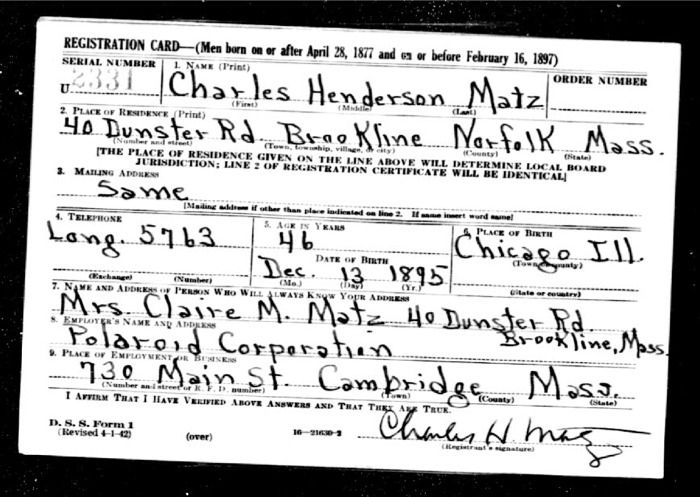 REGISTRATION CARD—(Men born on or after April 28, 1877 and on or before February 16, 1897)
SERIAL NUMBER 1. NAME (Print) ORDER NUMBER
U 2331 Charles Henderson Matz
(First) (Middle) (Last)
2. PLACE OF RESIDENCE (Print)
40 Dunster Rd. Brookline Norfolk Mass.
(Number and street) (Town, township, village, or city) (County) (State)
[THE PLACE OF RESIDENCE GIVEN ON THE LINE ABOVE WILL DETERMINE LOCAL BOARD
JURISDICTION; LINE 2 OF REGISTRATION CERTIFICATE WILL BE IDENTICAL]
3. MAILING ADDRESS
Same
[Mailing address if other than place indicated on line 2. If same insert word same]
4. TELEPHONE 5. AGE IN YEARS 6. PLACE OF BIRTH
Long. 5763 46 Chicago Ill.
DATE OF BIRTH (Town or county)
Dec. 13 1895
(Exchange) (Number) (Mo.) (Day) (Yr.) (State or country)
7. NAME AND ADDRESS OF PERSON WHO WILL ALWAYS KNOW YOUR ADDRESS
Mrs. Claire M. Matz 40 Dunster Rd.
Brookline, Mass.
8. EMPLOYER'S NAME AND ADDRESS
Polaroid Corporation
9. PLACE OF EMPLOYMENT OR BUSINESS
730 Main St. Cambridge Mass.
(Number and street or R. F. D. number) (Town) (County) (State)
I AFFIRM THAT I HAVE VERIFIED ABOVE ANSWERS AND THAT THEY ARE TRUE.
D. S. S. Form 1
(Revised 4-1-42) (over) 16—21630-2 Charles H. Matz
(Registrant's signature)